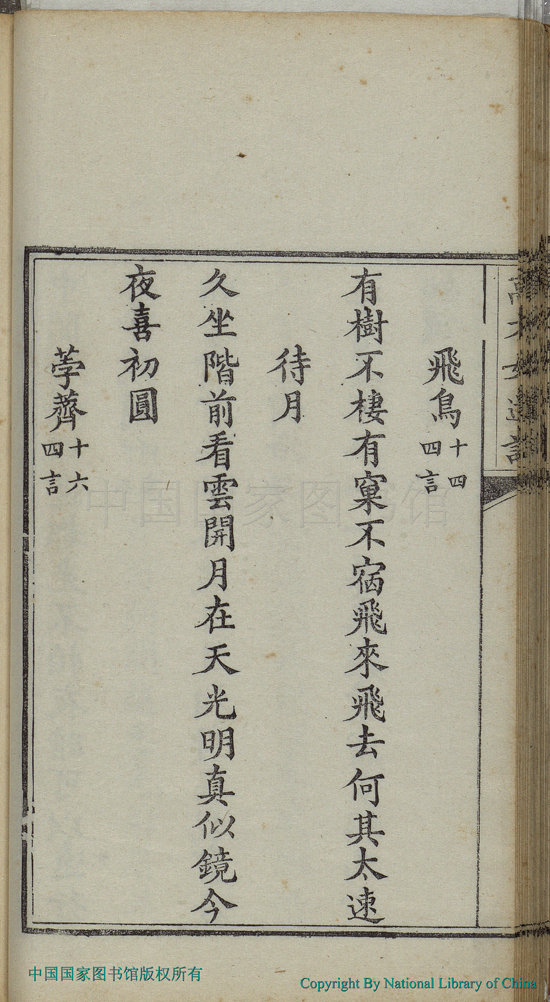 飛鳥 十四 四言
有樹不棲有窠不宿飛來飛去何其太速
待月
久坐階前看雲開月在天光明真似鏡今
夜喜初圓
葶薺 十六 四言
中国国家图书馆
中国国家图书馆版权所有
Copyright By National Library of China